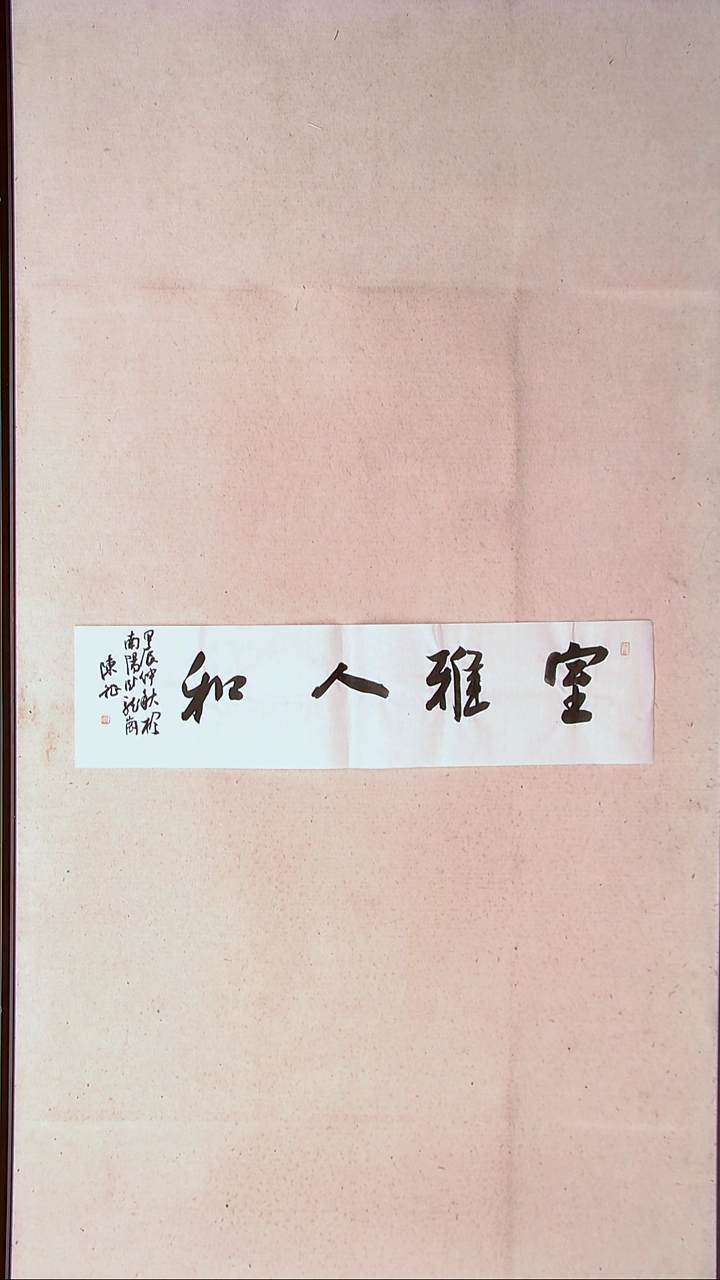 室雅人和
甲辰仲秋於
南陽卧龍崗
陳